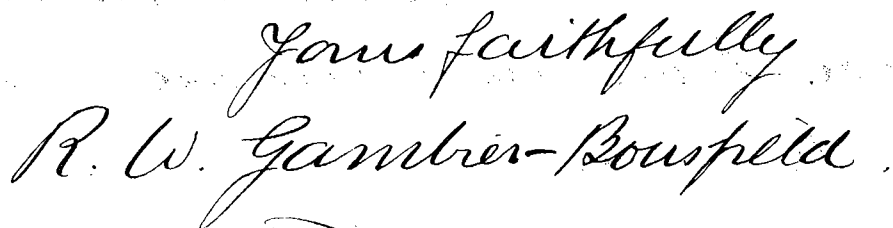 Yours faithfully
R. W. Gambier-Bousfield.